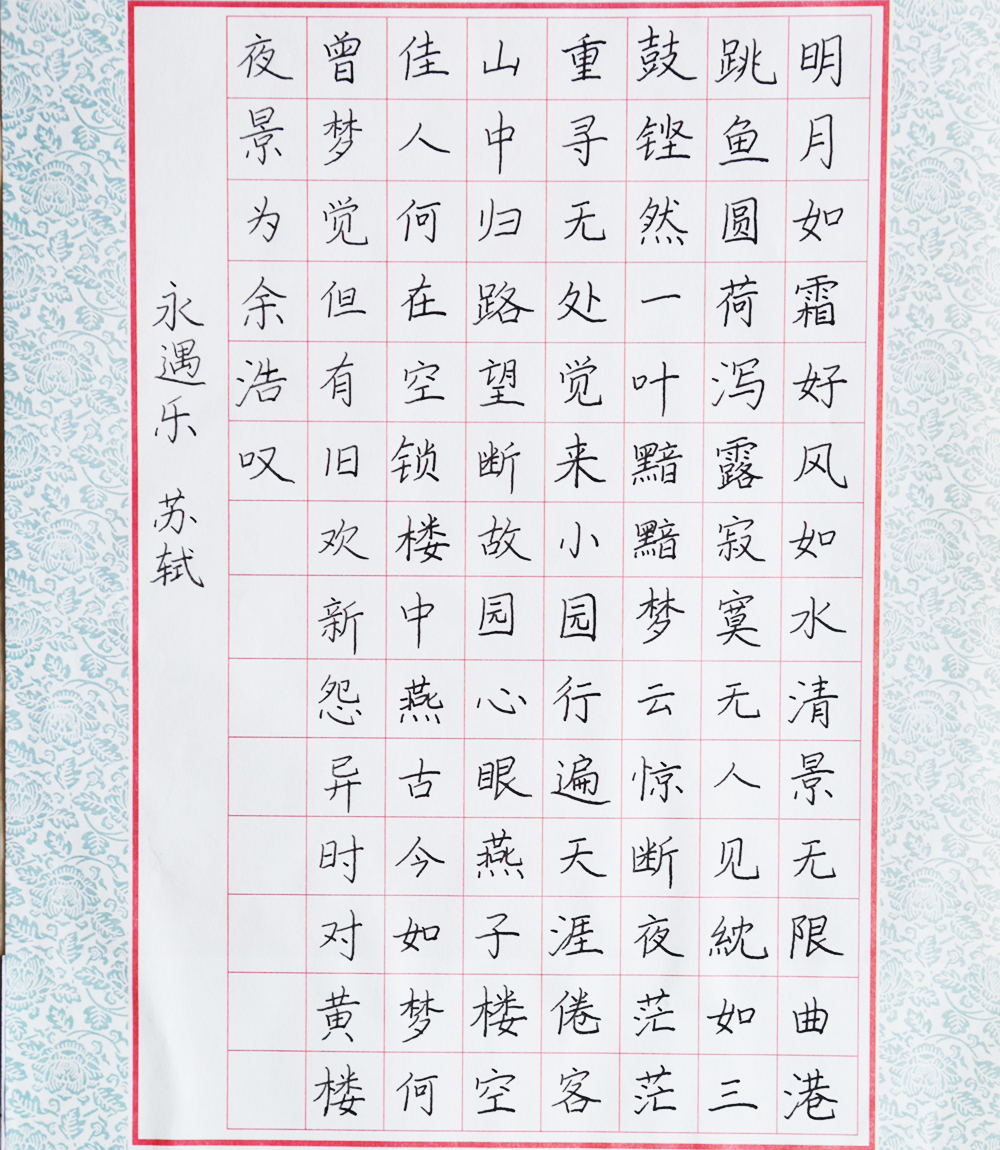 明月如霜好风如水清景无限曲港
跳鱼圆荷泻露寂寞无人见紞如三
鼓铿然一叶黯黯梦云惊断夜茫茫
重寻无处觉来小园行遍天涯倦客
山中归路望断故园心眼燕子楼空
佳人何在空锁楼中燕古今如梦何
曾梦觉但有旧欢新怨异时对黄楼
夜景为余浩叹
永遇乐 苏轼